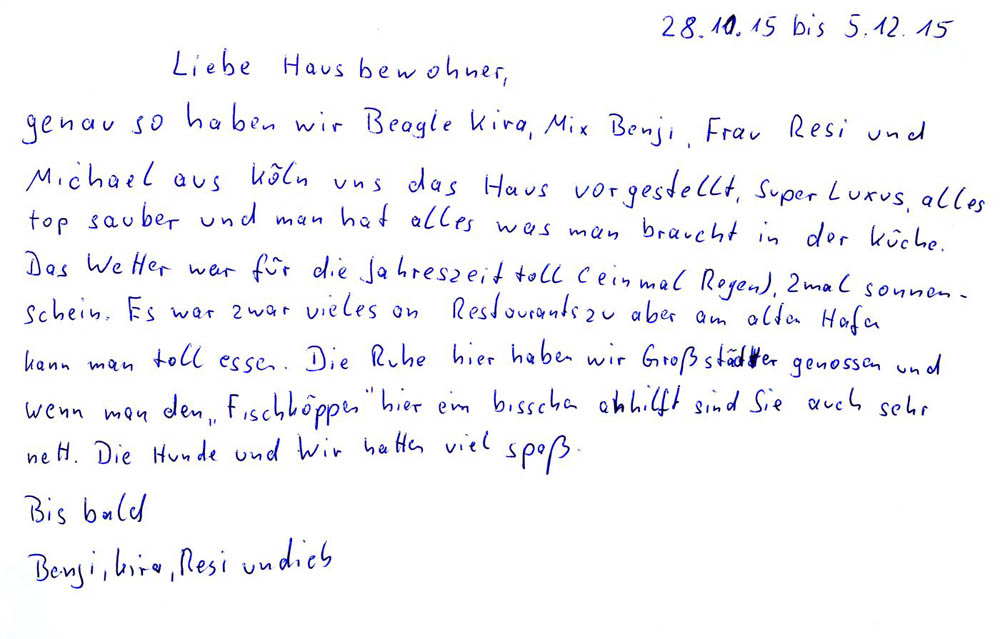 28.10.15 bis 5.12.15
Liebe Hausbewohner,
genau so haben wir Beagle Kira, Mix Benji, Frau Resi und
Michael aus Köln uns das Haus vorgestellt, Super Luxus, alles
top sauber und man hat alles was man braucht in der Küche.
Das Wetter war für die Jahreszeit toll (einmal Regen), 2mal sonnen-
schein. Es war zwar vieles an Restaurants zu aber am alten Hafen
kann man toll essen. Die Ruhe hier haben wir Großstädter genossen und
wenn man den „Fischköppen" hier ein bisschen anhilft sind Sie auch sehr
nett. Die Hunde und Wir hatten viel spaß.
Bis bald
Benji, Kira, Resi und